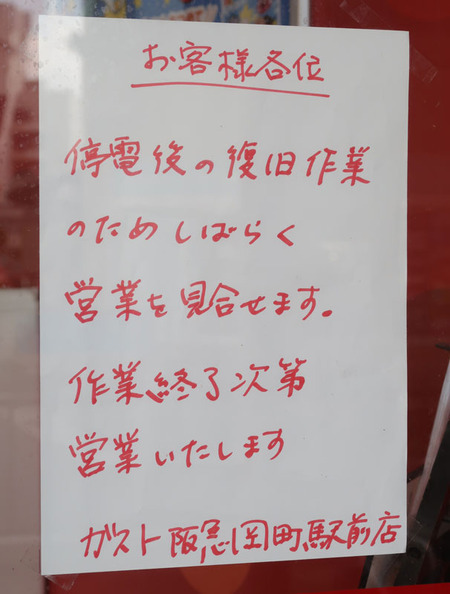 お客様各位
停電後の復旧作業
のためしばらく
営業を見合せます。
作業終了次第
営業いたします
ガスト阪急岡町駅前店